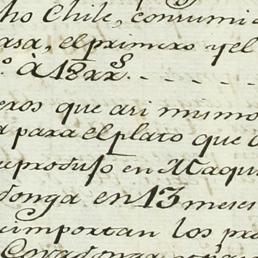 ho Chile, consumi
asa, el primero y el
eros que asi mismo
a para el plato que
produjo en Maqui
donga en 13 meses
importan los pro
Covadonga